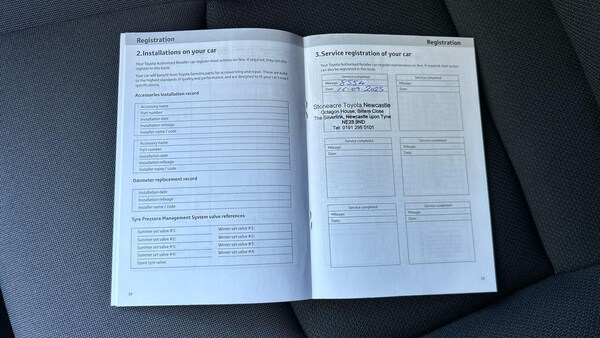 Registration
2. Installations on your car
Your Toyota Authorised Retailer can register most actions on-line. If required, they can also
register in this book.
Your car will benefit from Toyota Genuine parts for accessorising and repair. These are build
to the highest standards of quality and performance, and are designed to fit your car's exact
specifications.
Accessories installation record
Accessory name
Part number
Installation date
Installation mileage
Installer name / code
Accessory name
Part number
Installation date
Installation mileage
Installer name / code
Odometer replacement record
Installation date
Installation mileage
Installer name / code
Tyre Pressure Management System valve references
Summer set valve #1: Winter set valve #1:
Summer set valve #2: Winter set valve #2:
Summer set valve #3: Winter set valve #3:
Summer set valve #4: Winter set valve #4:
Spare tyre valve:
Registration
3. Service registration of your car
Your Toyota Authorised Retailer can register maintenance on-line. If required, their action
can also be registered in this book.
Service completed
Mileage: 8554
Date: 2025
Stoneacre Toyota Newcastle
Octagon House, Bittern Close
The Silverlink, Newcastle upon Tyne
NE28 9ND
Tel: 0191 295 0101
Service completed
Mileage:
Date:
Service completed
Mileage:
Date:
Service completed
Mileage:
Date:
Service completed
Mileage:
Date:
Service completed
Mileage:
Date: